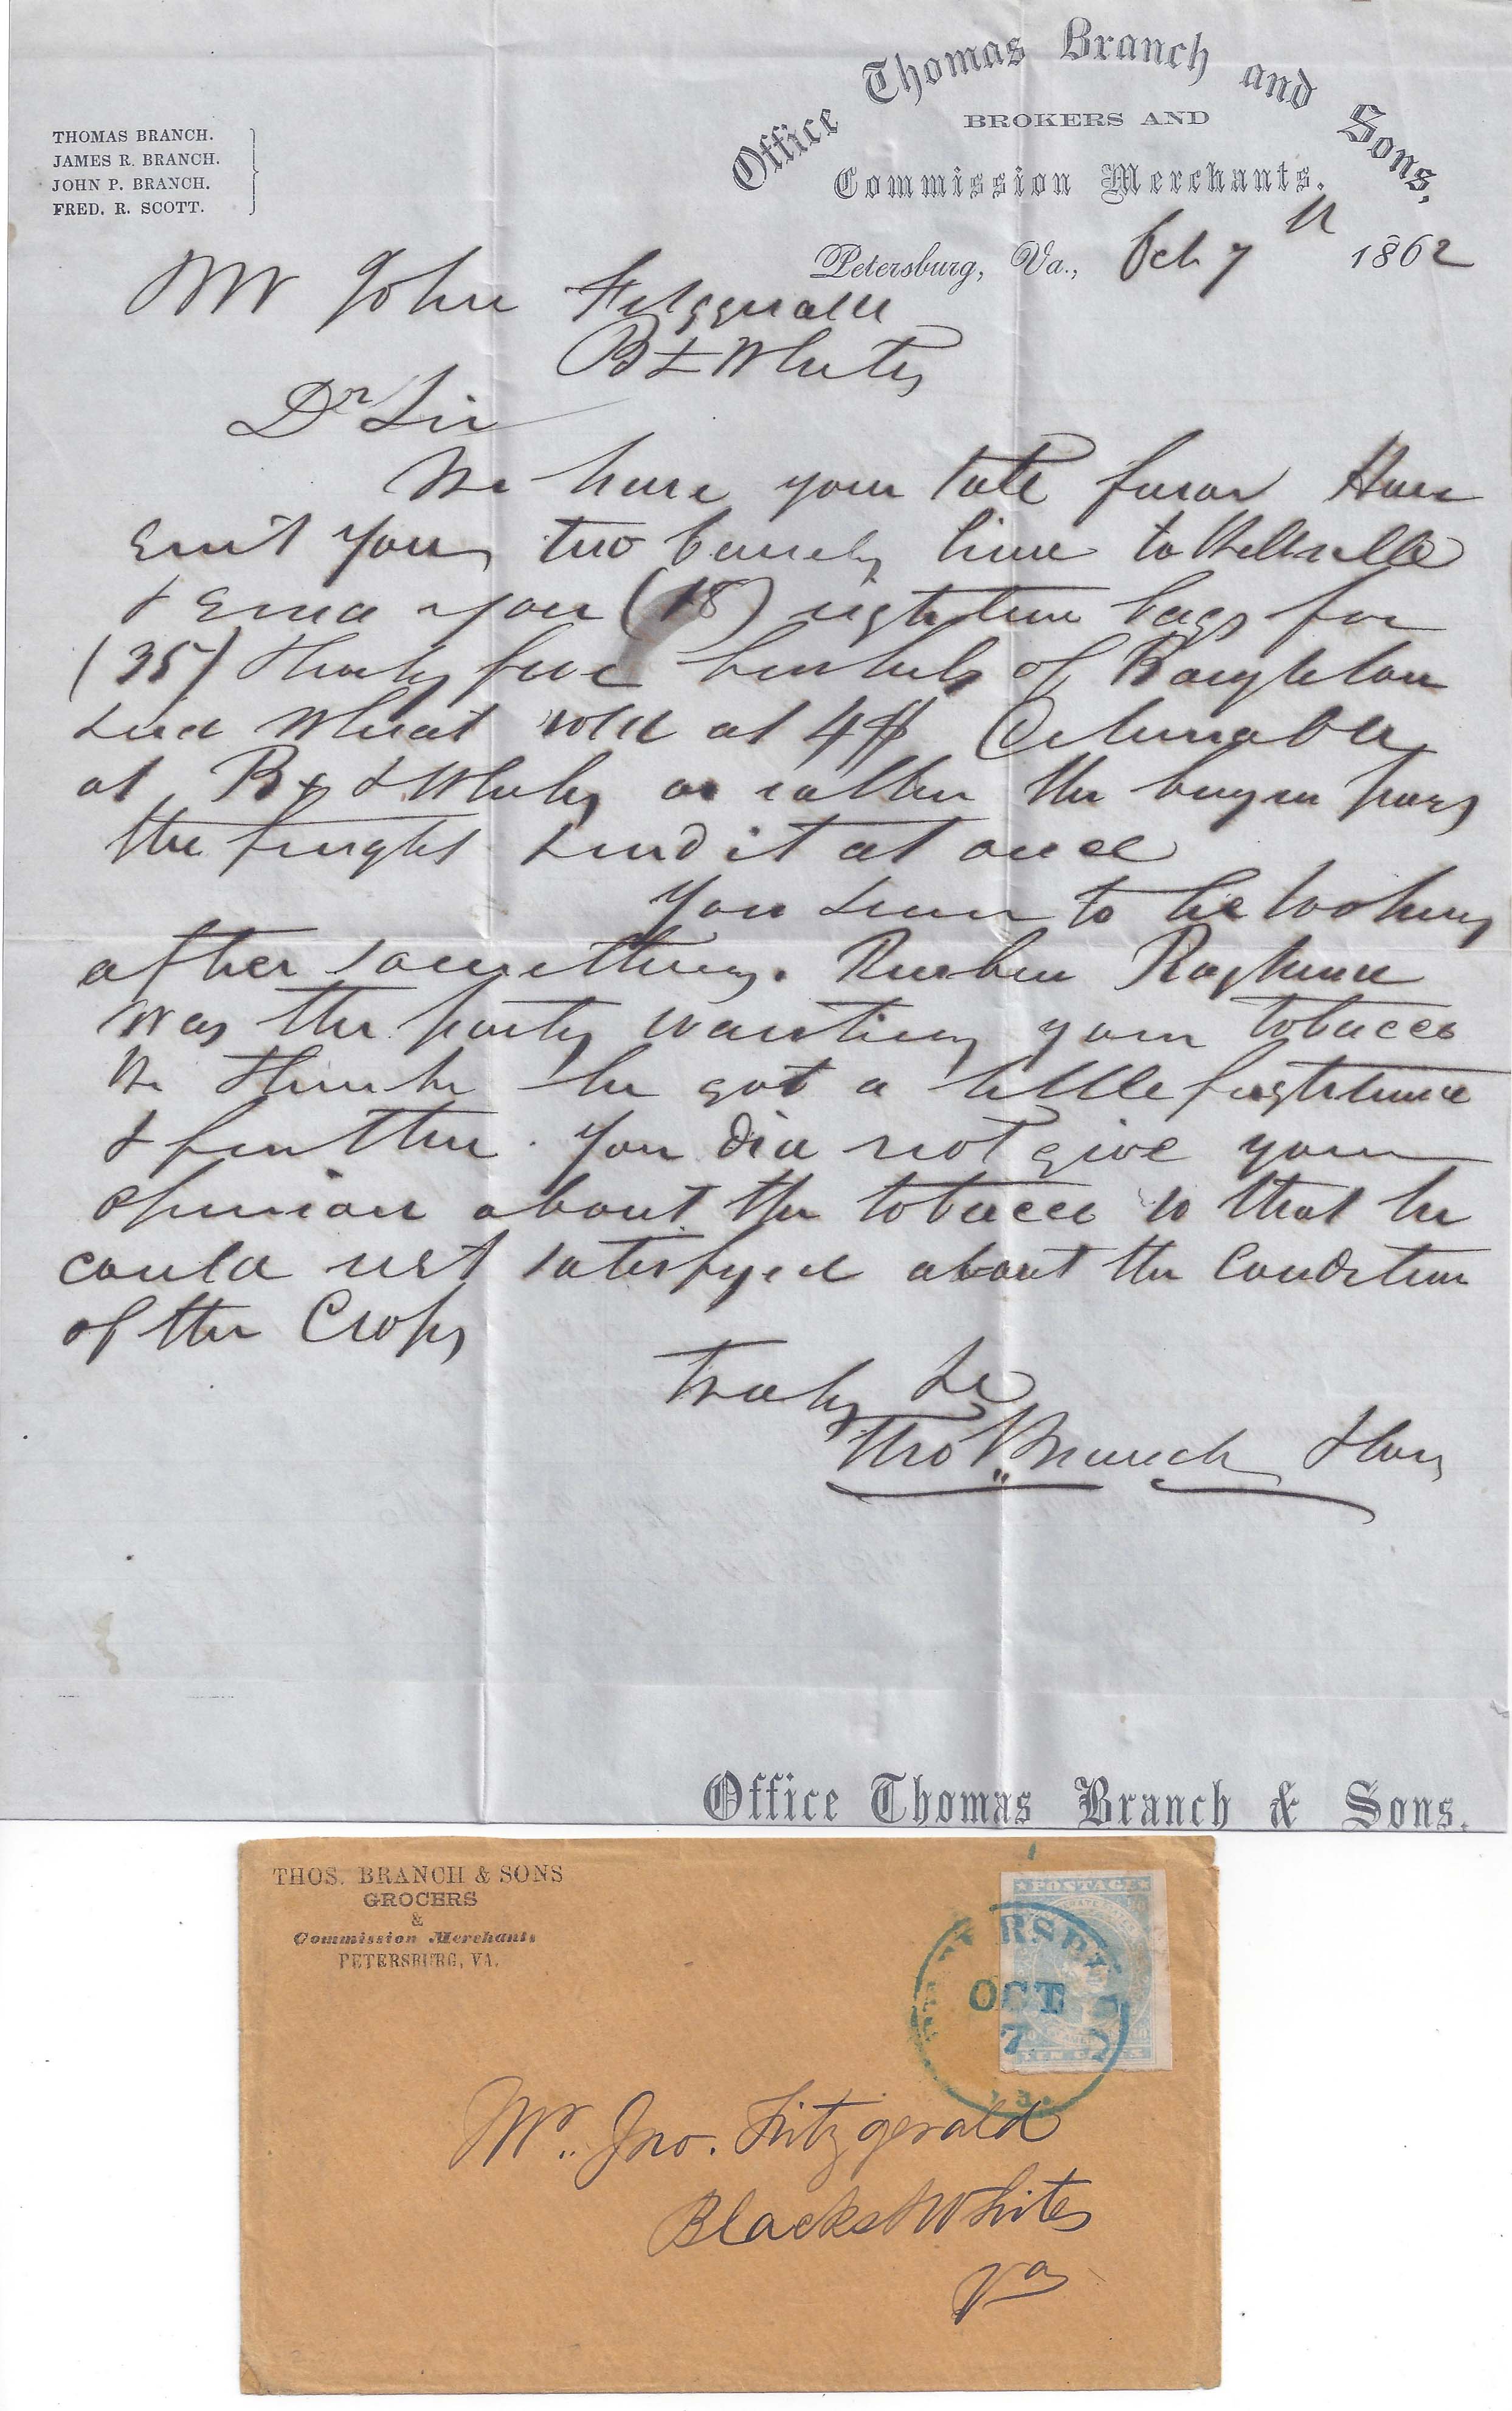 Office Thomas Branch and Sons,
BROKERS AND
Commission Merchants.
THOMAS BRANCH.
JAMES R. BRANCH.
JOHN P. BRANCH.
FRED. R. SCOTT.
Petersburg, Va., Oct 7th 1862
Mr John Fitzgerald
B & Whites
Dr Sir
We have your late favor Have
sent you two barrels lime to Bellville
& send you (18) eighteen bags for
(35) thirty five bushels of
seed wheat sold at 4$ Deliverable
at Bs & Whites or rather the buyer pays
the freight send it at once
You seem to be looking
after something. Reuben Ragland
was the party wanting your tobacco
We think he got a little
& further. You did not give your
opinion about the tobacco so that he
could not satisfyed about the Condition
of the Crops
Truly &c
Tho Branch & Sons
Office Thomas Branch & Sons.
THOS. BRANCH & SONS
GROCERS
&
Commission Merchants
PETERSBURG, VA.
POSTAGE
TEN CENTS
OCT
7
Mr. Jno. Fitzgerald
Blacks & Whites
Va